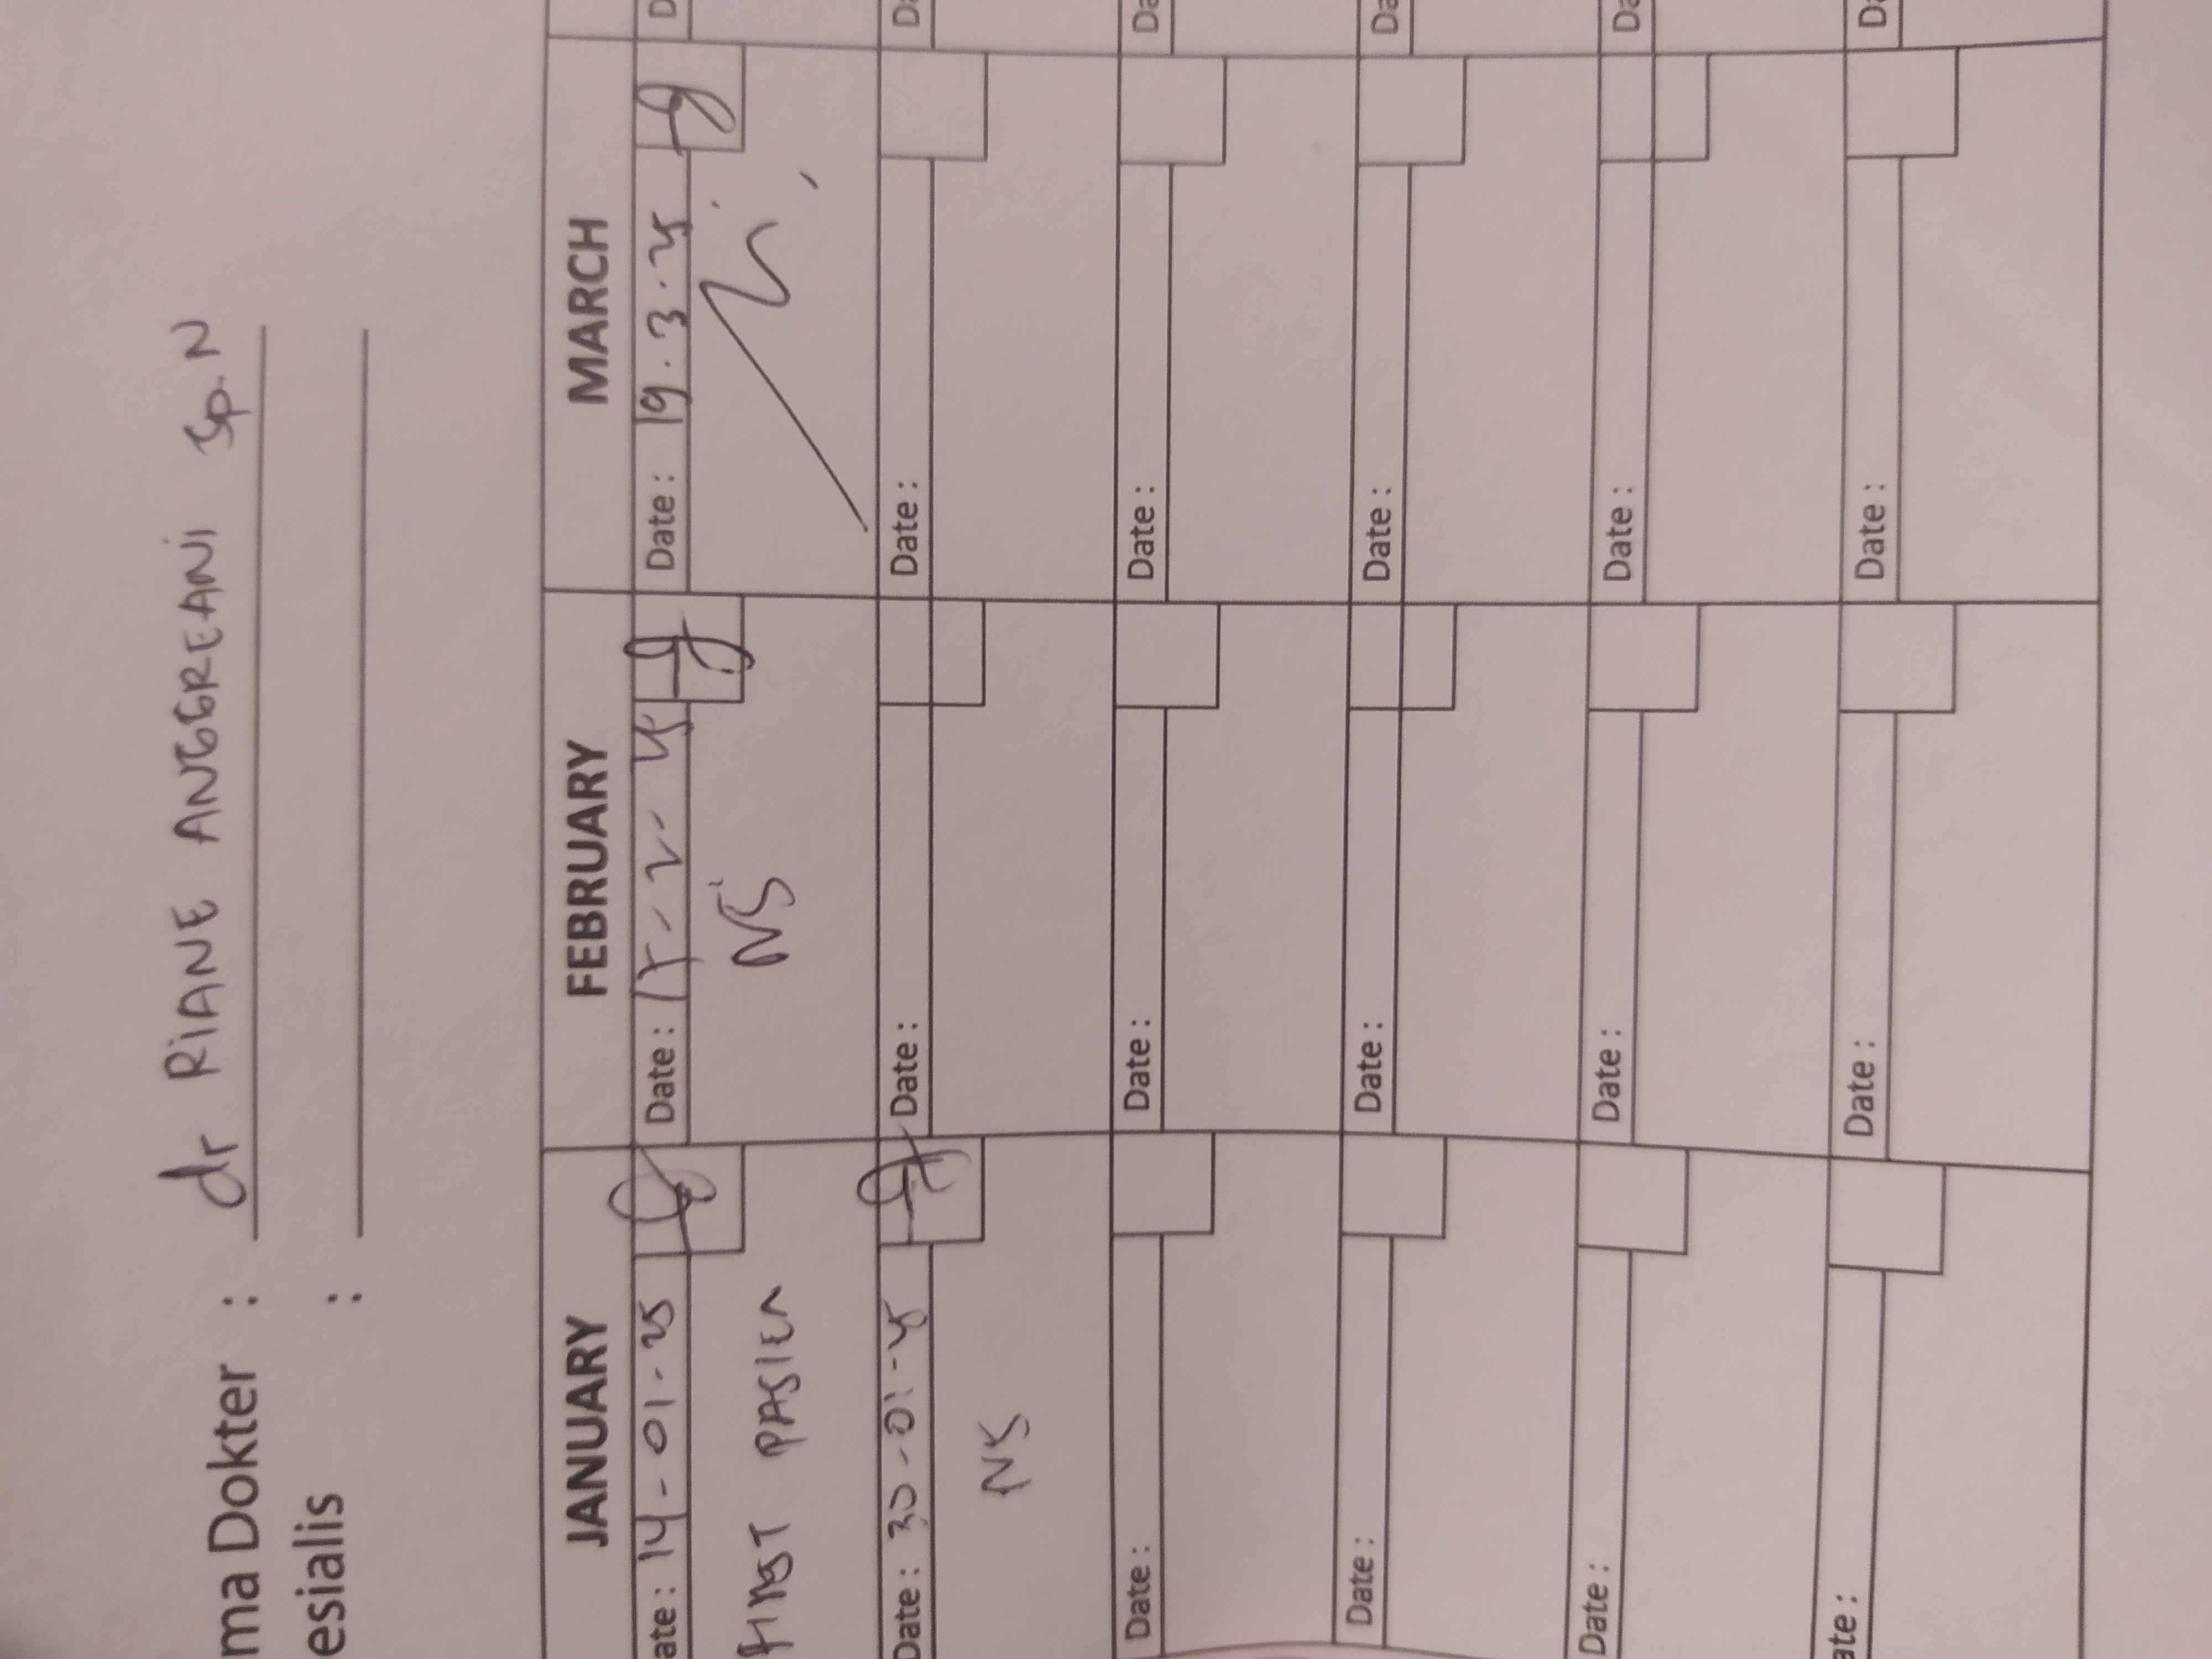 ma Dokter : dr RIANE ANGGREANI Sp.N
esialis :
JANUARY FEBRUARY MARCH
ate : 14 - 01 - 25 Date : Date : 19 . 3 . 25
FIRST PASIEN NS
Date : 30 - 01 - 25 Date : Date :
NS
Date : Date : Date :
Date : Date : Date :
Date : Date : Date :
ate : Date : Date :